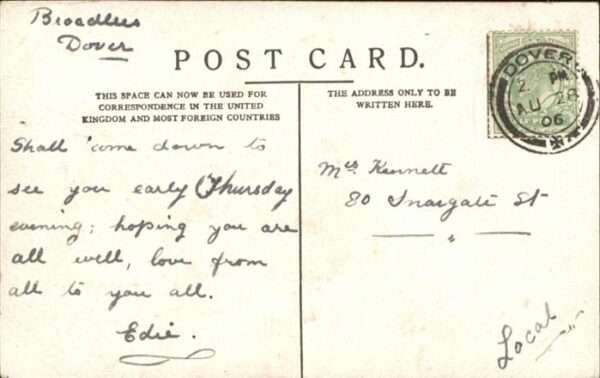 Broadlees
Dover
POST CARD.
THIS SPACE CAN NOW BE USED FOR
CORRESPONDENCE IN THE UNITED
KINGDOM AND MOST FOREIGN COUNTRIES
THE ADDRESS ONLY TO BE
WRITTEN HERE.
DOVER
PM
AU 28
06
Shall come down to
see you early Thursday
evening; hoping you are
all well, love from
all to you all.
Edie.
Mrs Kennett
80 Snargate St
Local